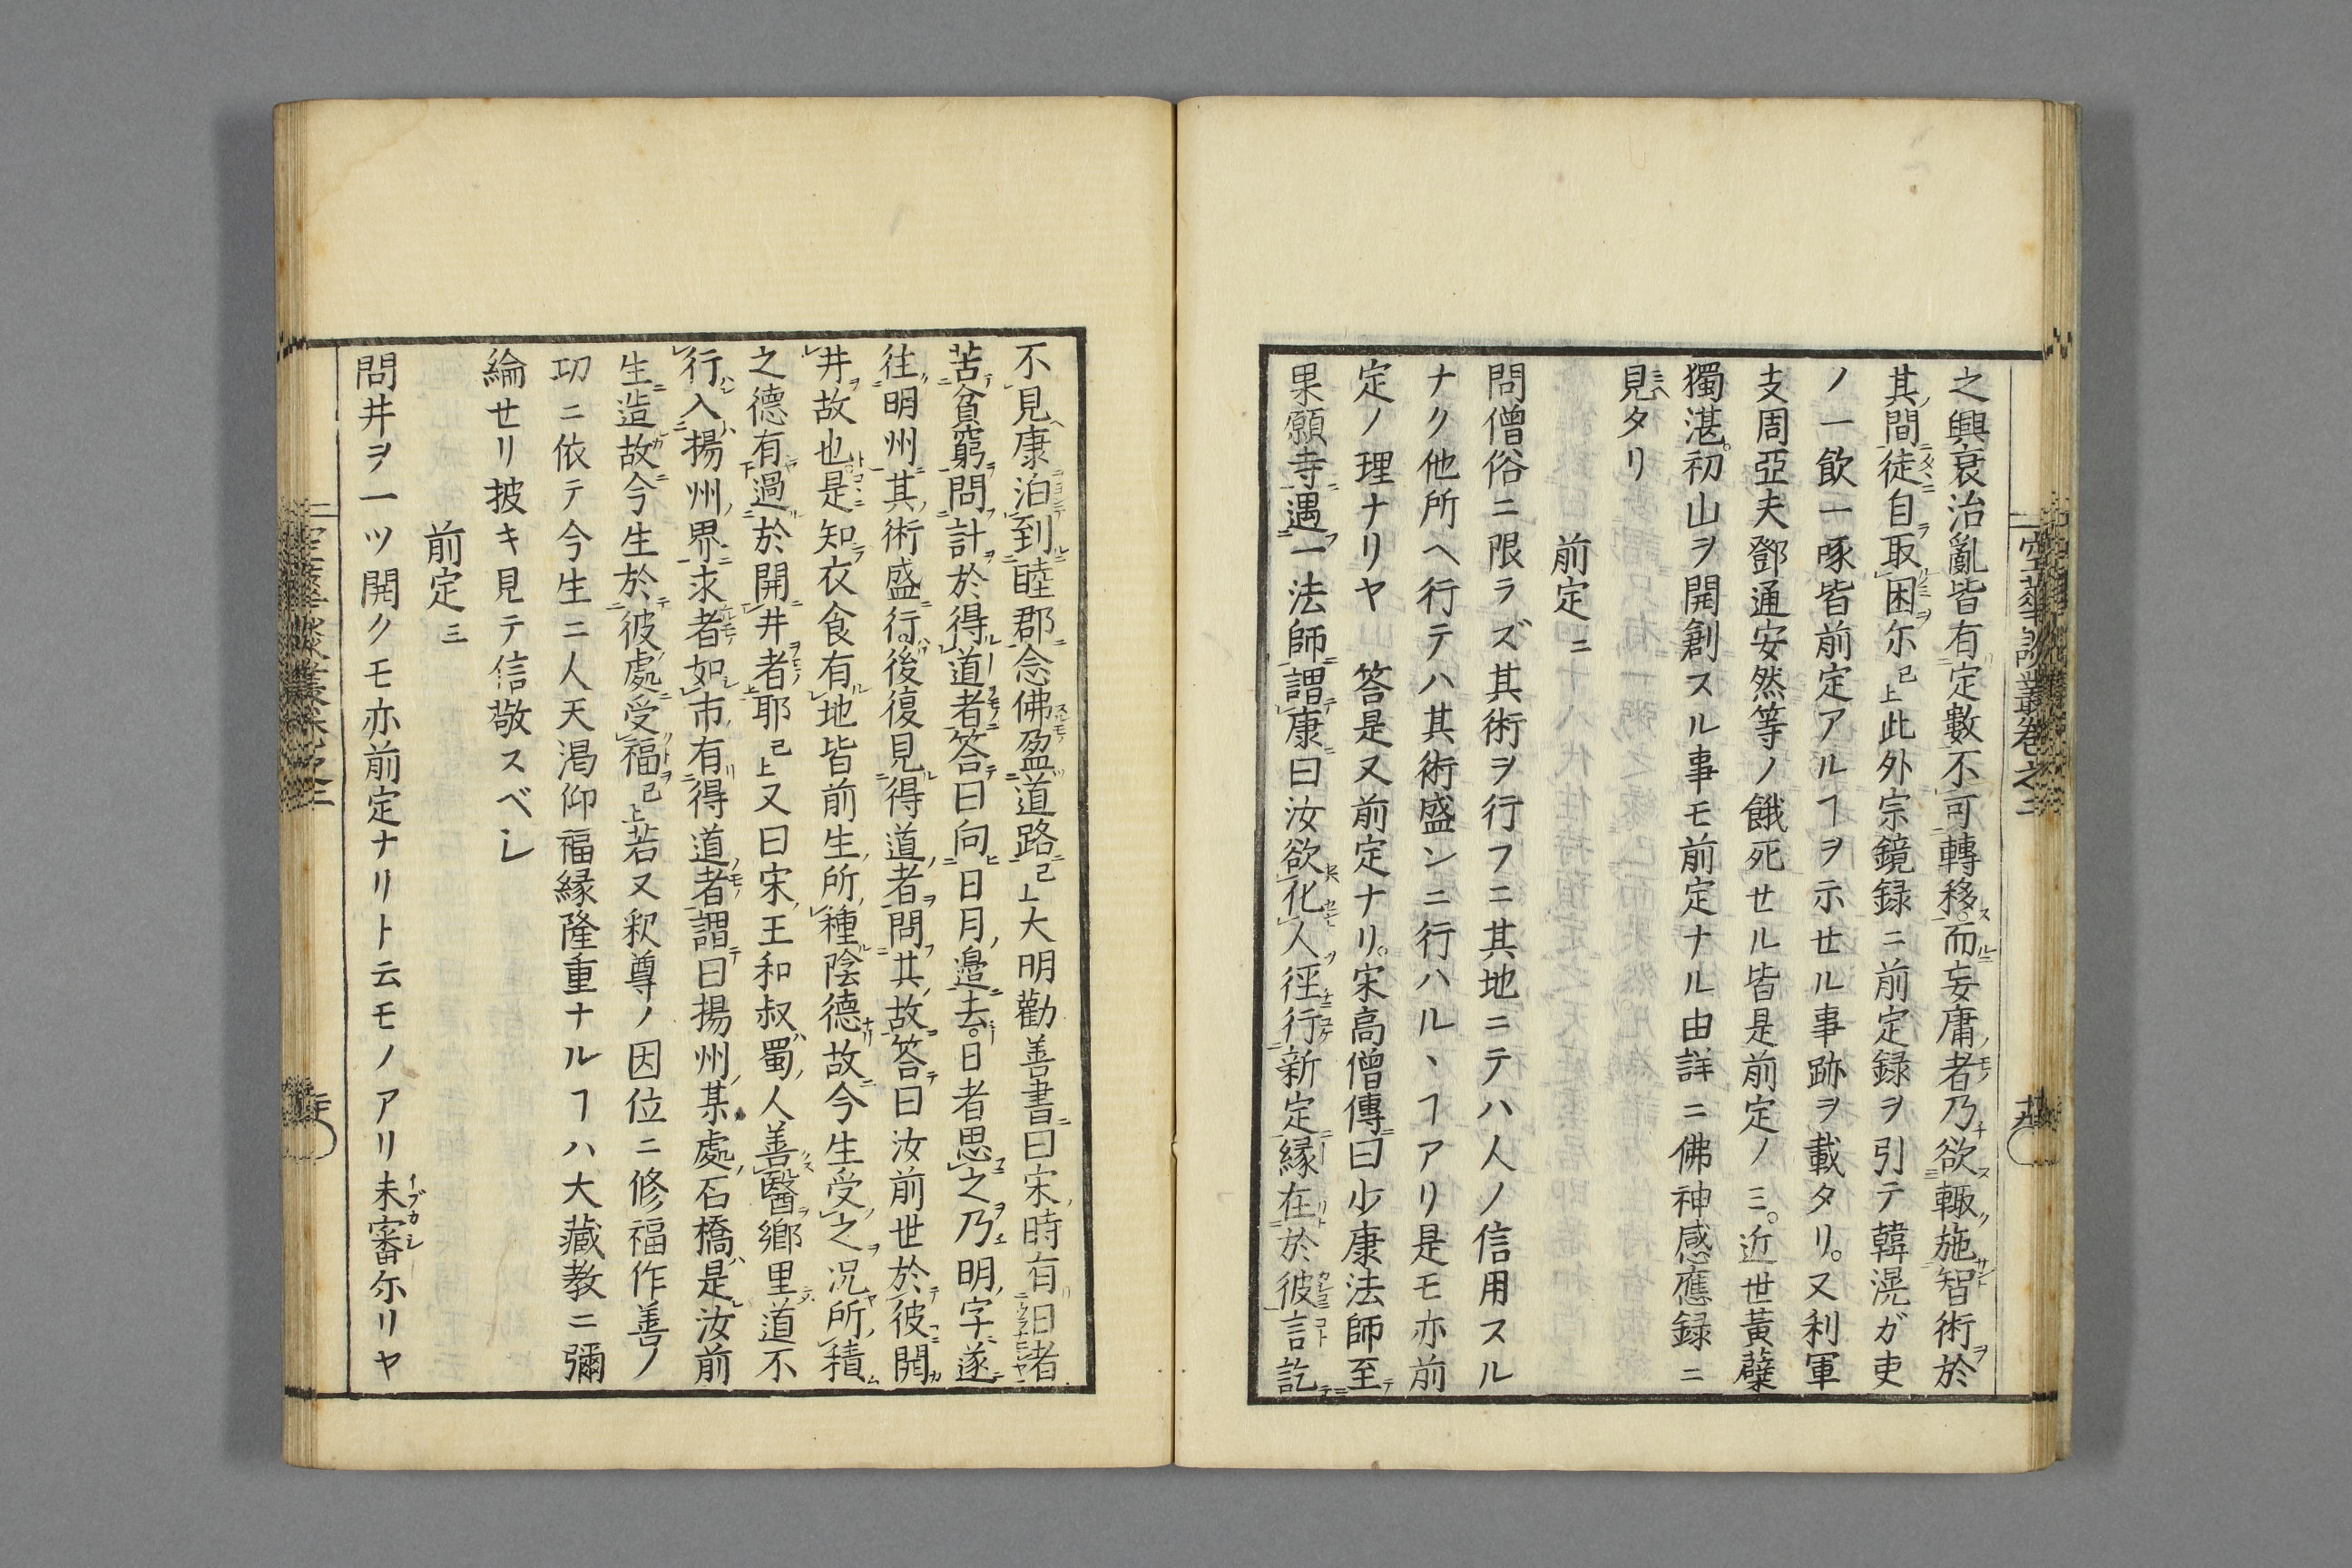 之興衰治亂皆有定數不可轉移而妄庸者乃欲輙施智術於
其間徒自取困尓已上此外宗鏡録ニ前定録ヲ引テ韓滉ガ吏
ノ一飲一啄皆前定アルヿヲ示セル事跡ヲ載タリ。又利軍
支周亞夫鄧通安然等ノ餓死セル皆是前定ノミ。近世黃蘗
獨湛。初山ヲ開創スル事モ前定ナル由詳ニ佛神感應録ニ
見タリ
前定二
問僧俗ニ限ラズ其術ヲ行フニ其地ニテハ人ノ信用スル
ナク他所ヘ行テハ其術盛ンニ行ハルヽヿアリ是モ亦前
定ノ理ナリヤ　答是又前定ナリ。宋高僧傳曰少康法師至
果願寺遇一法師謂康曰汝欲化人徑行新定縁在於彼言訖
不見康泊到睦郡念佛盈道路已上大明勸善書曰宋時有日者
苦貧窮問計於得道者答曰向日月邉去。日者思之乃明字遂
往明州其術盛行。後復見得道者問其故答曰汝前世於彼開
井故也。是知衣食有地皆前生所種陰德故今生受之况所積
之德有過於開井者耶已上又曰宋王和叔蜀人善醫鄉里道不
行入揚州界求者如市有得道者謂曰揚州某處石橋是汝前
生造故今生於彼處受福已上若又釈尊ノ因位ニ修福作善ノ
功ニ依テ今生ニ人天渇仰福縁隆重ナルヿハ大藏教ニ彌
綸セリ披キ見テ信敬スベシ
前定三
問井ヲ一ツ開クモ亦前定ナリト云モノアリ未審尓リヤ